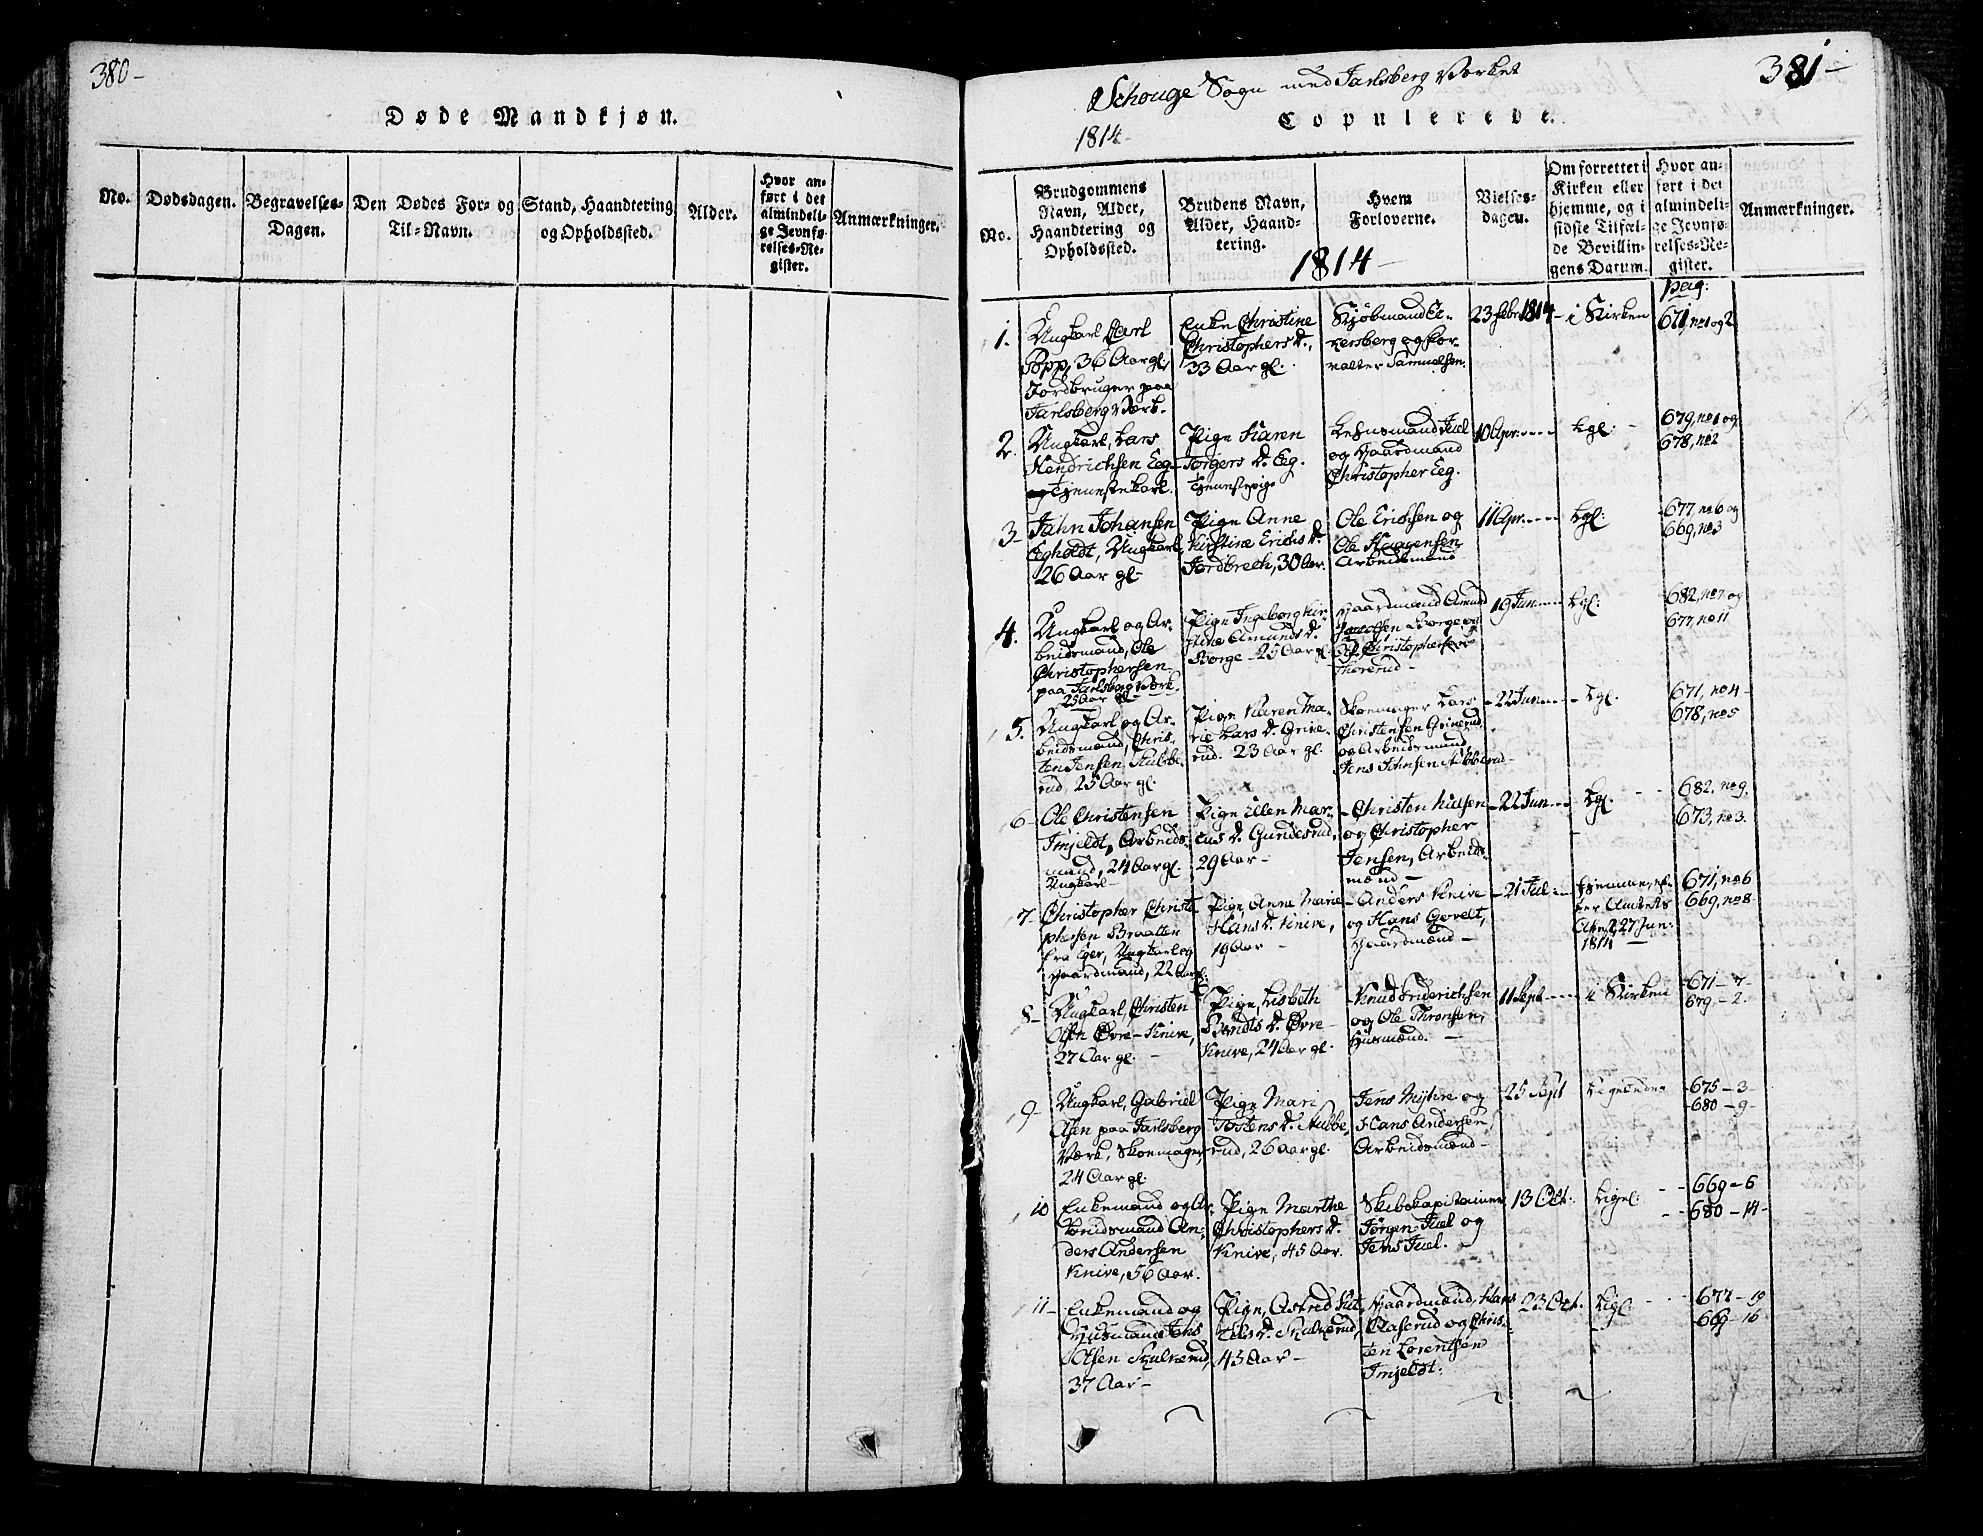 380-
Døde Mandkjøn.
No.
Dødsdagen.
Begravelses-
Dagen.
Den Dødes For- og
Til-Navn.
Stand, Haandtering
og Opholdssted.
Alder.
Hvor an-
ført i det
almindeli-
ge Jevnfø-
relses-Re-
gister.
Anmærkninger.
381-
Schouge Sogn med Jarlsberg Værket
1814-
Copulerede.
No.
Brudgommens
Navn, Alder,
Haandtering og
Opholdssted.
Brudens Navn,
Alder, Haand-
tering.
Hvem
Forloverne.
Vielses-
dagen.
Om forrettet i
Kirken eller
hjemme, og i
sidste Tilfæl-
de Bevillin-
gens Datum.
Hvor an-
ført i det
almindeli-
ge Jevnfø-
relses-Re-
gister.
Anmærkninger.
1814-
Pag:
1.
Ungkarl Carl
Popp, 36 Aar gl,
Jordbruger paa
Jarlsberg Værk.
Enke Christine
Christophers D.,
33 Aar gl.
Kjøbmand Ec-
kersberg og For-
valter Samuelsen.
23 Febr 1814-
i Kirken
671, no 1 og 2
2.
Ungkarl, Lars
Hendrichsen Eeg-
Tjenestekarl.
Pige Karen
Torgers D. Eeg.
Tjenestepige
Lehnsmand Juel
og Gaardmand
Christopher Eeg.
10 Apr.
Lgl:
679, no 1 og
678, no 2
3-
Jahn Johansen
Egholdt, Ungkarl,
26 Aar gl-
Pige Anne
Kirstine Erichs D.
Jordbrech, 30 Aar.
Ole Erichsen og
Ole Haagensen
Arbeidsmænd
11 Apr.
Lgl:
677 no 6 og
669, no 3
4.
Ungkarl og Ar-
beidsmand, Ole
Christophersen
paa Jarlsberg Værk,
25 Aar gl-
Pige Ingeborg Kir-
stine Amunds D.
Borge - 25 Aar gl
Gaardmand Amund
Jacobsen Borge og
Ole Christophersen
Thorerud -
19 Jun.
Lgl:
682, no 7 og
677, no 11
5.
Ungkarl og Ar-
beidsmand, Chris-
ten Jensen Stubbe-
rud, 25 Aar gl.
Pige Karen Ma-
rie Lars D. Grine-
rud. 23 Aar gl.
Skoemager Lars
Christensen Grinerud
og Arbeidsmand
Jens Johnsen Stubberud-
22 Jun
Lgl.
671, no 4-
678, no 5
6-
Ole Christensen
Imjeldt, Arbeids-
mand, 24 Aar gl.
Ungkarl-
Pige Ellen Mar-
cus D. Gundesrud,
29 Aar-
Christen Nielsen
og Christopher
Jensen, Arbeids-
mænd-
22 Jun
Lgl.
682. no 9.
673, no 3.
7-
Christopher Christo-
phersen Braatten
fra Eger, Ungkarl og
Gaardmand, 22 Aar gl:
Pige, Anne Marie
Hans D. Knive,
19 Aar -
Anders Knive
og Hans Gevelt,
Gaardmænd-
21 Jul
hjemme, ef-
ter Amtets
27 Jun:
1814 -
671, no 6
669, no 8-
8-
Ungkarl, Christen
Olsen Øvre-Knive,
27 Aar gl. -
Pige, Lisbeth
Bendts D. Øvre-
Knive, 24 Aar gl.
Knud Friderichsen
og Ole Thronsen,
Huusmænd. -
11 Sept
i Kirken
671-7-
679-2.
9-
Ungkarl, Gabriel
Olsen paa Jarlsberg
Værk, Skoemager,
24 Aar gl.
Pige Mari
Tostens D. Stubbe-
rud, 26 Aar gl.
Jens Myhre og
Hans Andersen,
Arbeidsmænd-
25 Sept
Ligeledes
675-3-
680-9-
10
Enkemand og Ar-
beidsmand An-
ders Andersen
Knive, 56 Aar.
Pige Marthe
Christophers D.
Knive, 45 Aar.
Skibskapitainer
Jørgen Juel og
Jens Juel. -
13 Oct.
Ligel:
669-6
680-14-
11-
Enkemand og
Huusmand Jens
Olsen Skulverud,
37 Aar-
Pige, Astrid Kit-
tels D. Skulverud,
45 Aar-
Gaardmænd, Hans
Claserud og Chris-
ten Lorentsen
Imjeldt.
23 Oct.
Ligl:
677-19
669-16